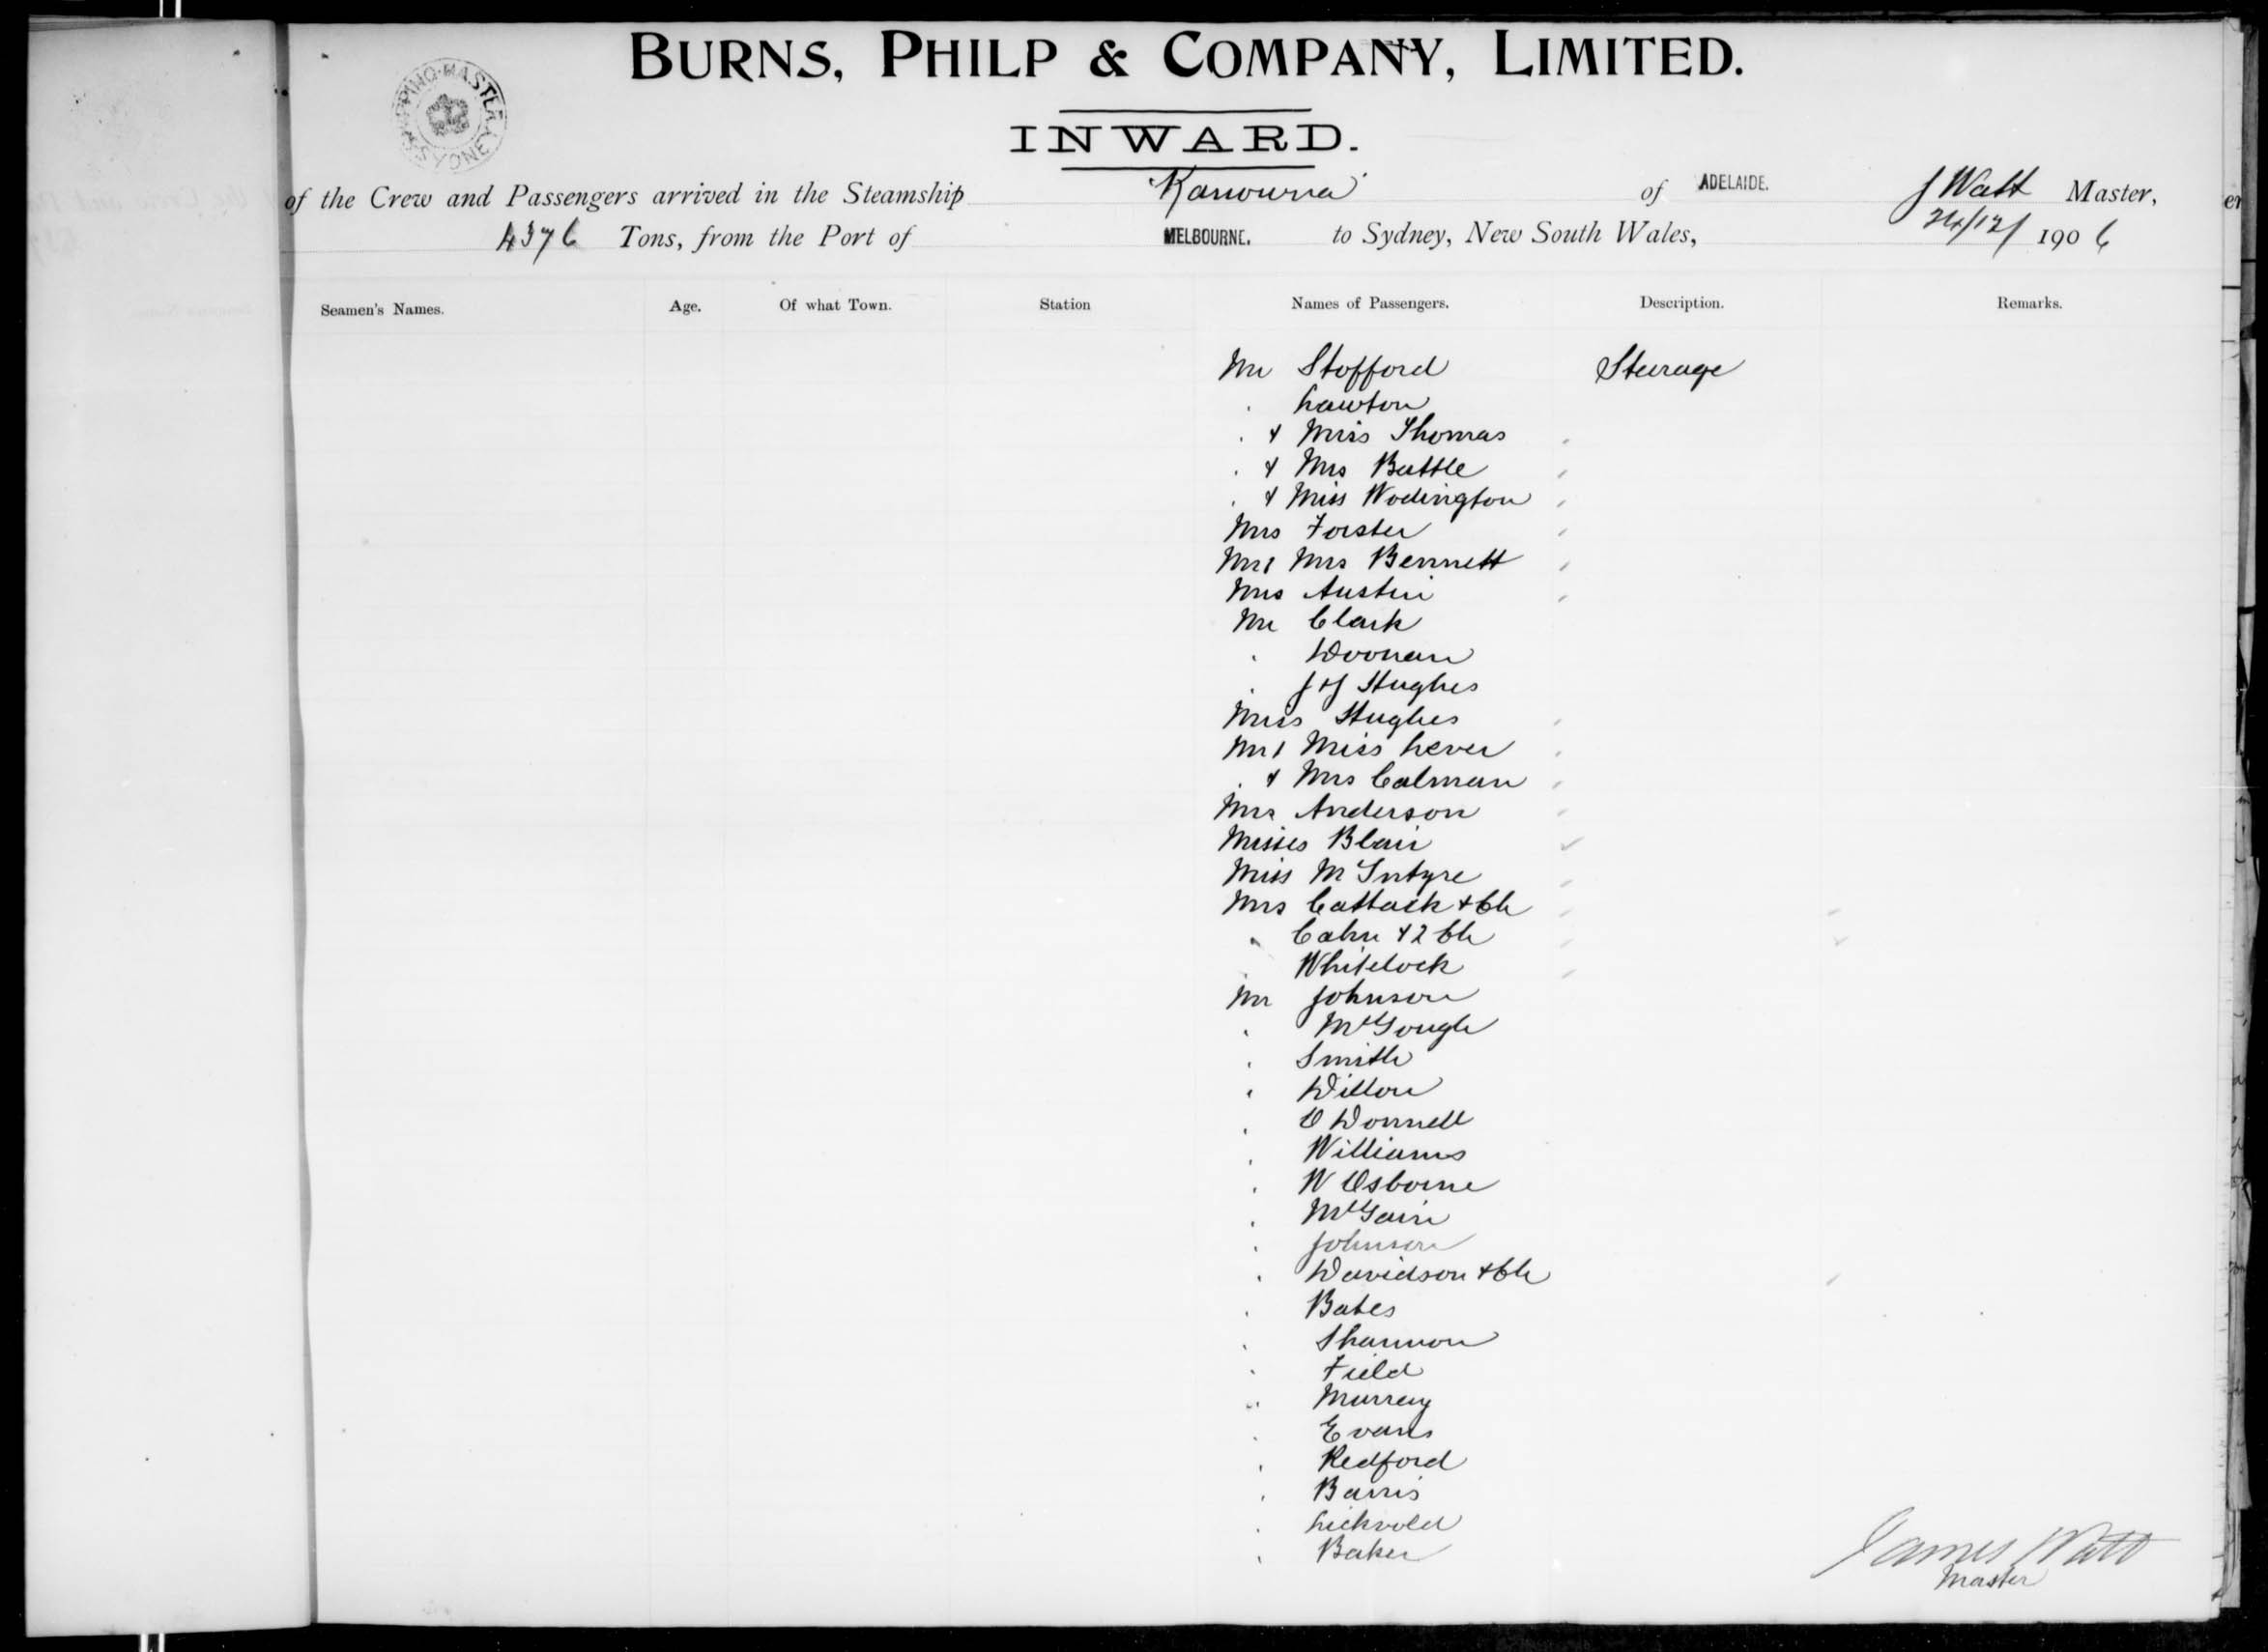 BURNS, PHILP & COMPANY, LIMITED.
SHIPPING MASTER SYDNEY
INWARD.
of the Crew and Passengers arrived in the Steamship 'Kanowna' of ADELAIDE. J Watt Master,
4376 Tons, from the Port of MELBOURNE. to Sydney, New South Wales, 24/12/ 1906
Seamen's Names. Age. Of what Town. Station Names of Passengers. Description. Remarks.
Mr Stofford Steerage
Lawton
& Miss Thomas
& Mrs Buttle
& Miss Wodington
Mrs Forster
Mr & Mrs Bennett
Mrs Austin
Mr Clark
Doonan
J & J Hughes
Miss Hughes
Mr & Miss Lever
& Mrs Calman
Mrs Anderson
Misses Blair
Miss McIntyre
Mrs Cattach & Ch
Cahn & 2 Ch
Whitelock
Mr Johnson
McGough
Smith
Dillon
O Donnell
Williams
W Osborne
McGain
Johnson
Davidson & Ch
Bates
Shannon
Field
Murray
Evans
Redford
Barris
Baker
James Watt
Master